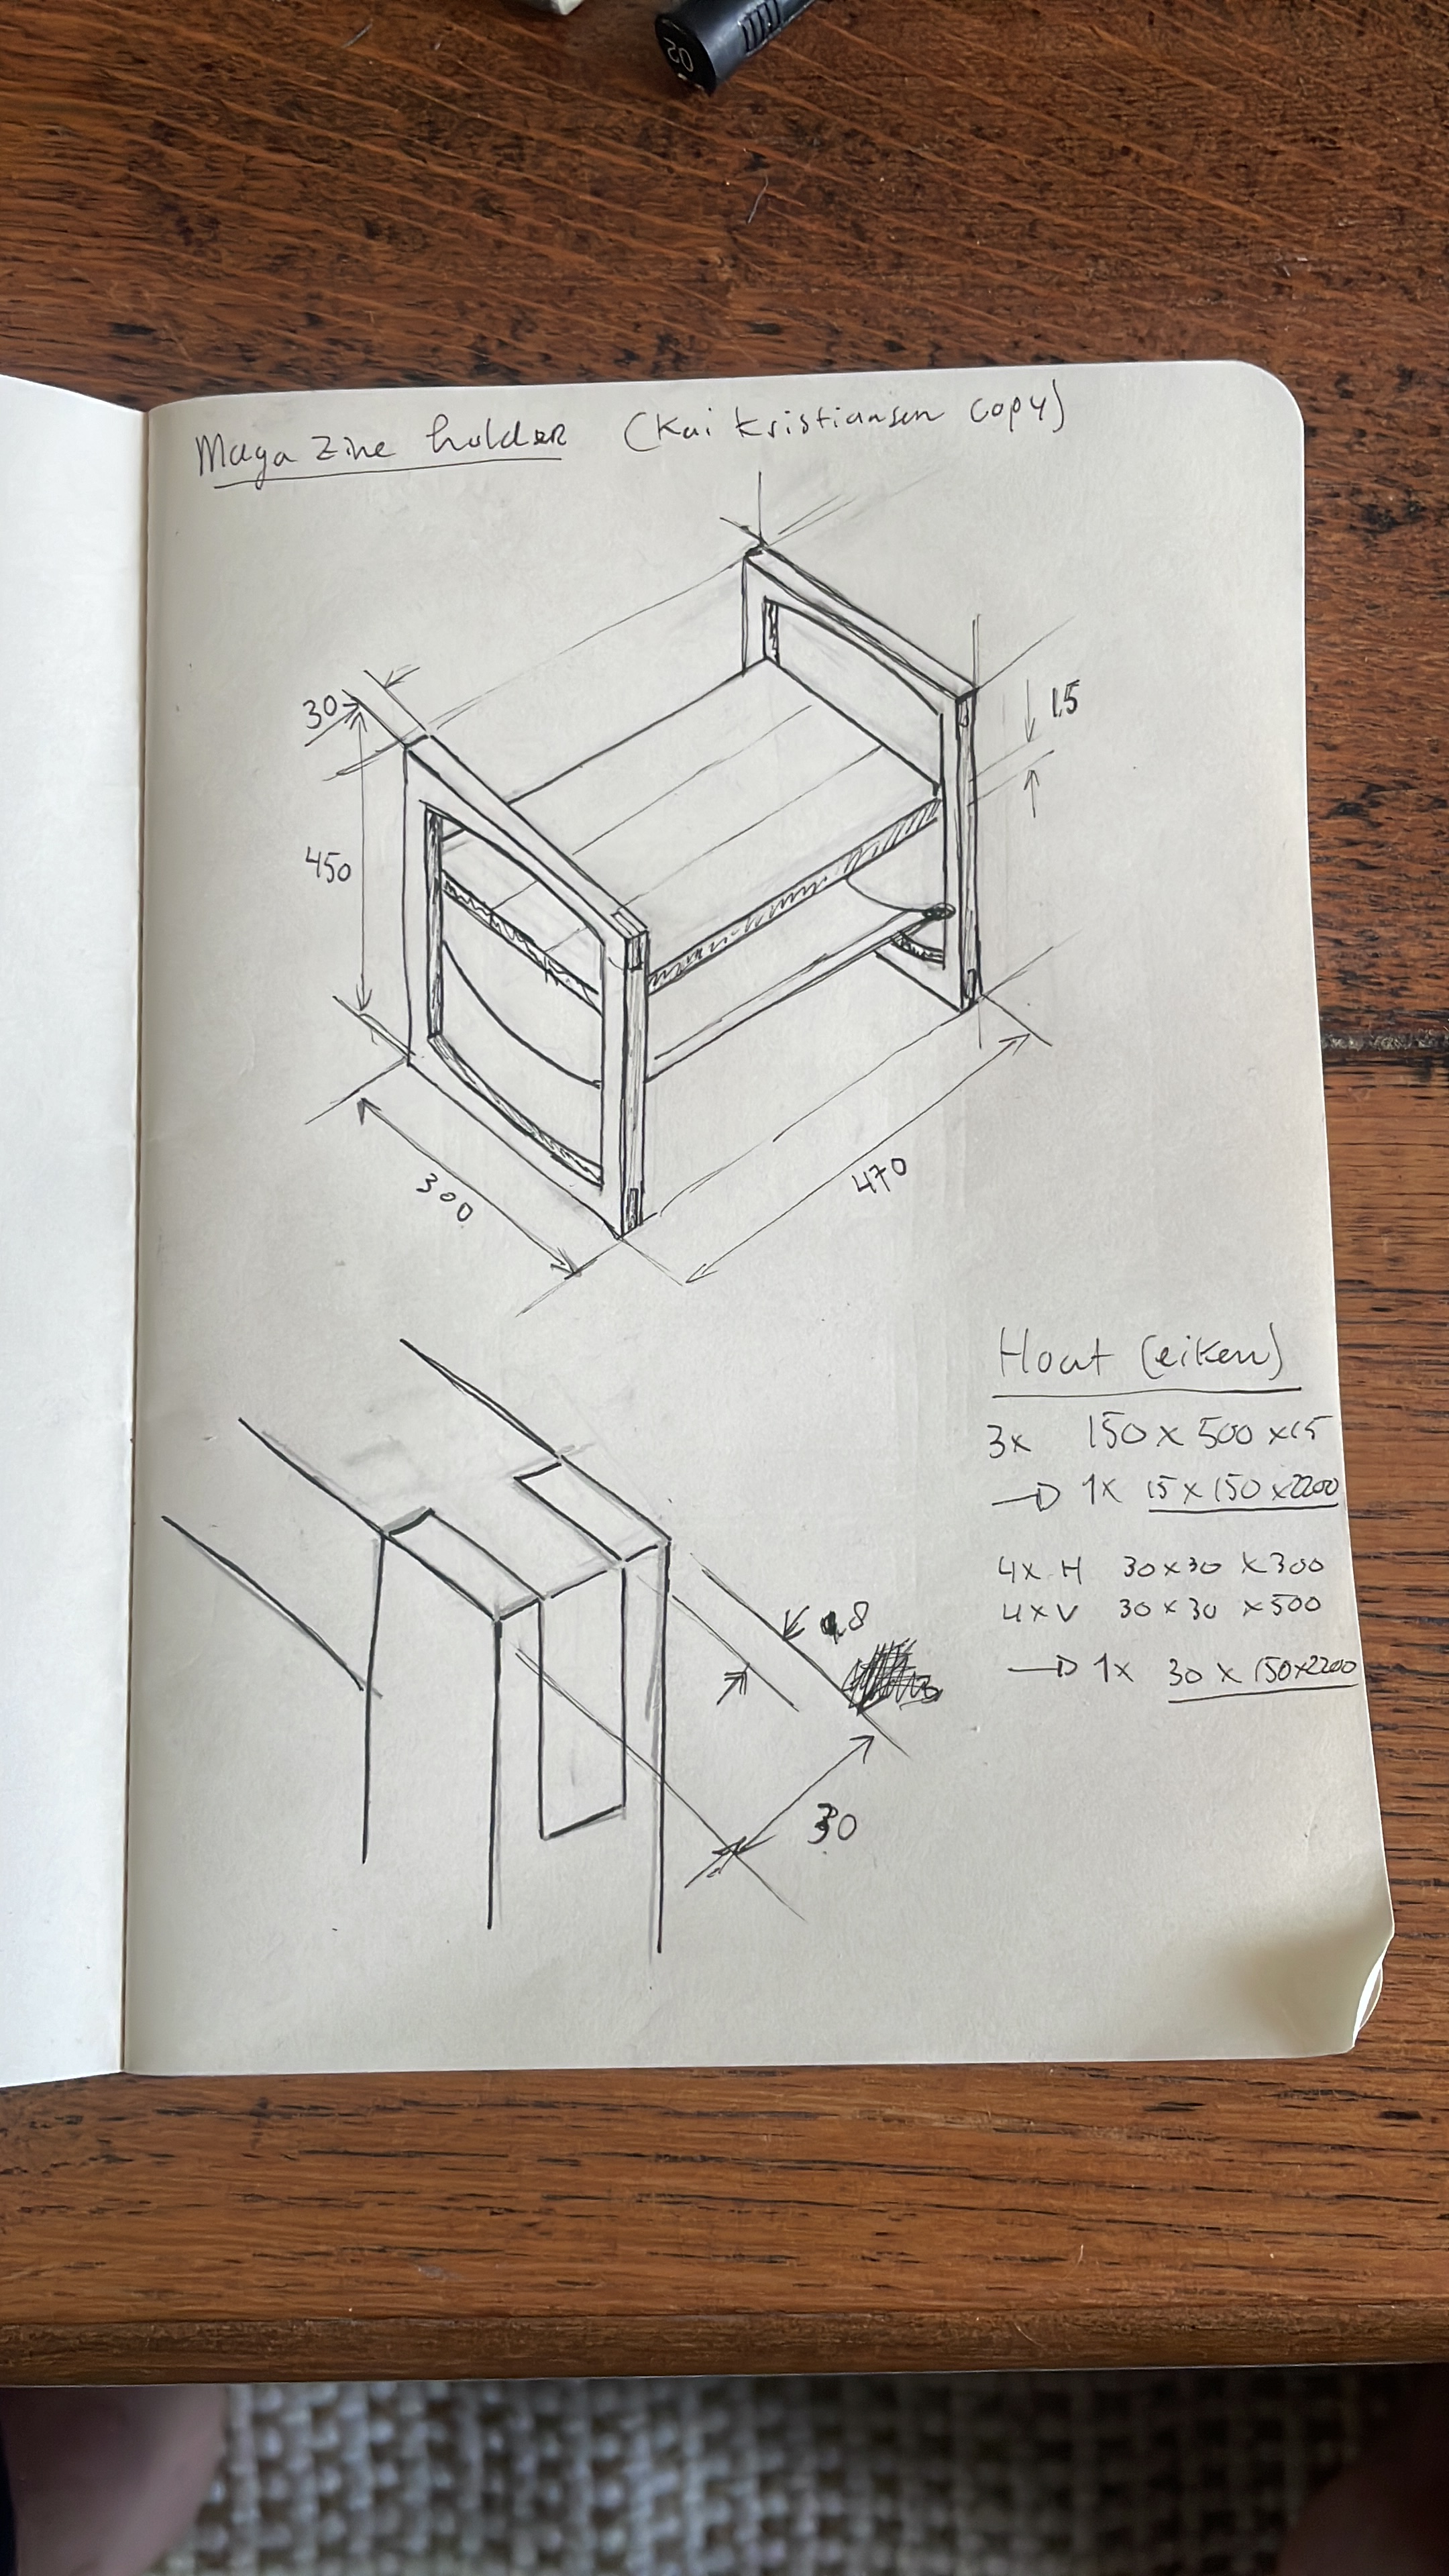 02
Magazine holder (Kai Kristiansen copy)
30
15
450
300
470
Hout (eiken)
3x 150 x 500 x 15
→ 1x 15 x 150 x 2200
4x H 30 x 30 x 300
4x V 30 x 30 x 500
→ 1x 30 x 150 x 2200
30